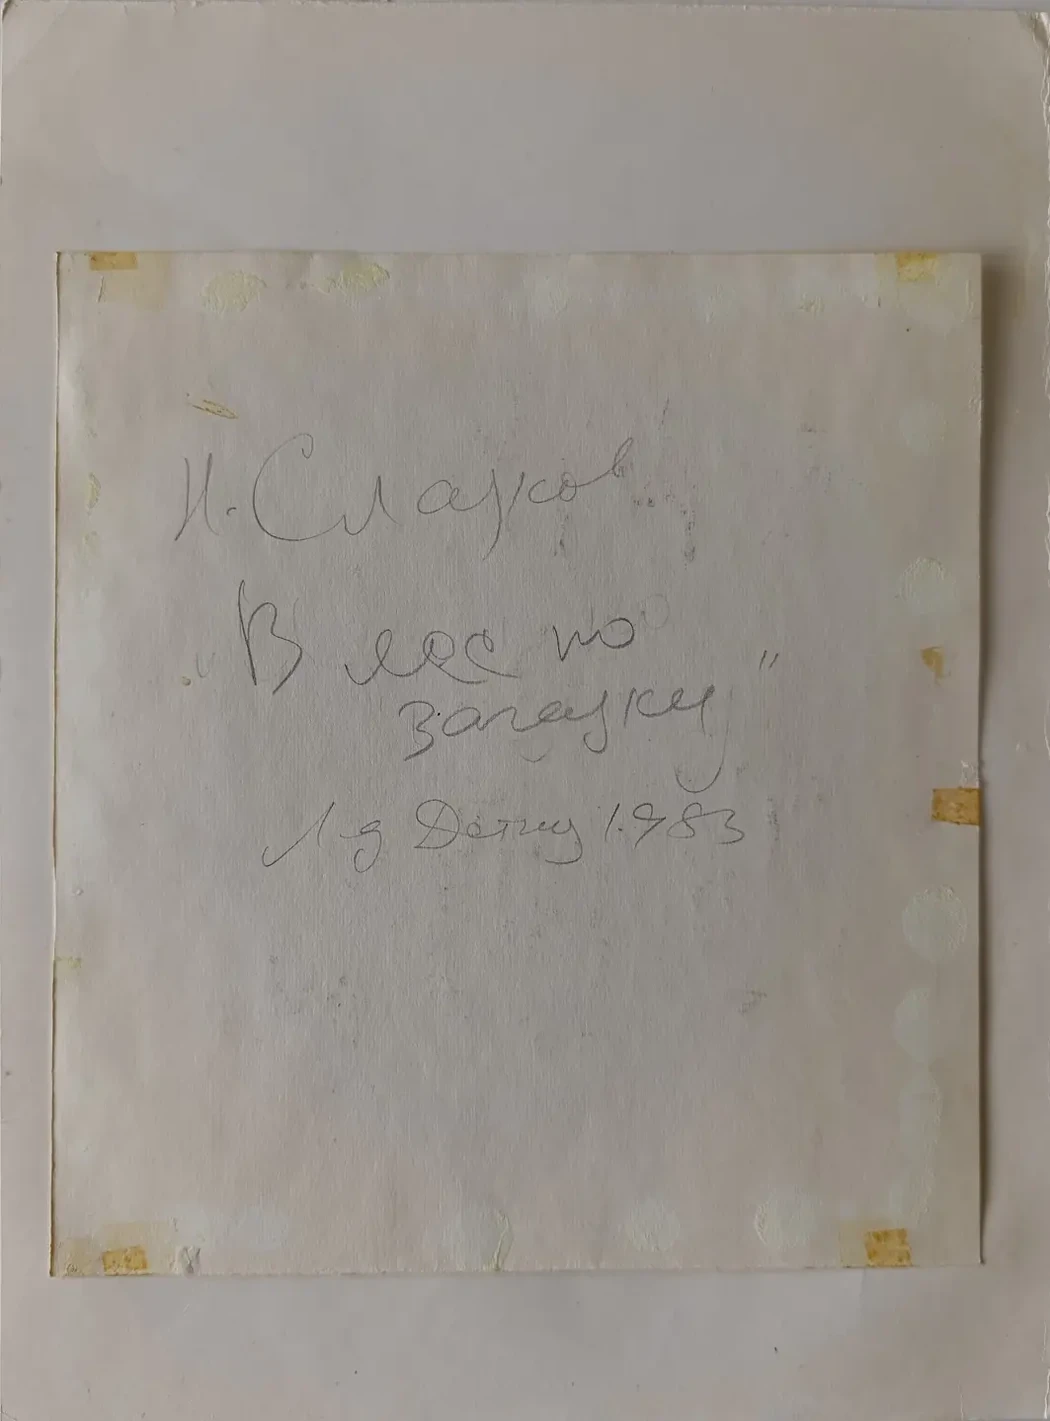 Н. Сладков
"В лес по
загадку"
Л-д Детгиз 1.983